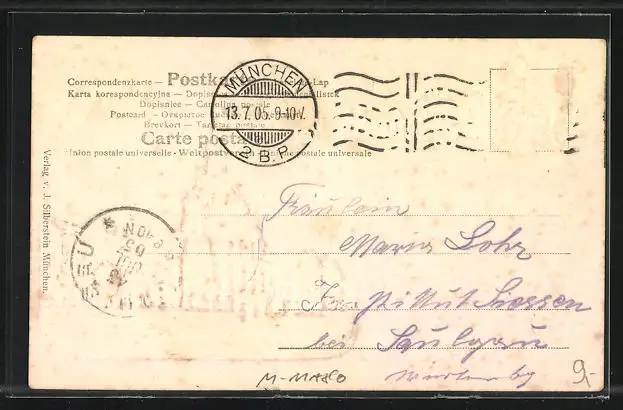 Correspondenzkarte — Postka
Karta korespondencyjna — Dopis
Dopisnice — Cartolina postale
Postcard — Открытое
Brevkort — Tarjeta postale
Carte posta
Union postale universelle - Weltpostverein - Union postale universale
MÜNCHEN
13.7.05.9-10V.
2 B.P.
Verlag v. J. Silberstein München.
Fräulein
Maria Lohr
Institut Siessen
bei Saulgau
Württemberg
9,-